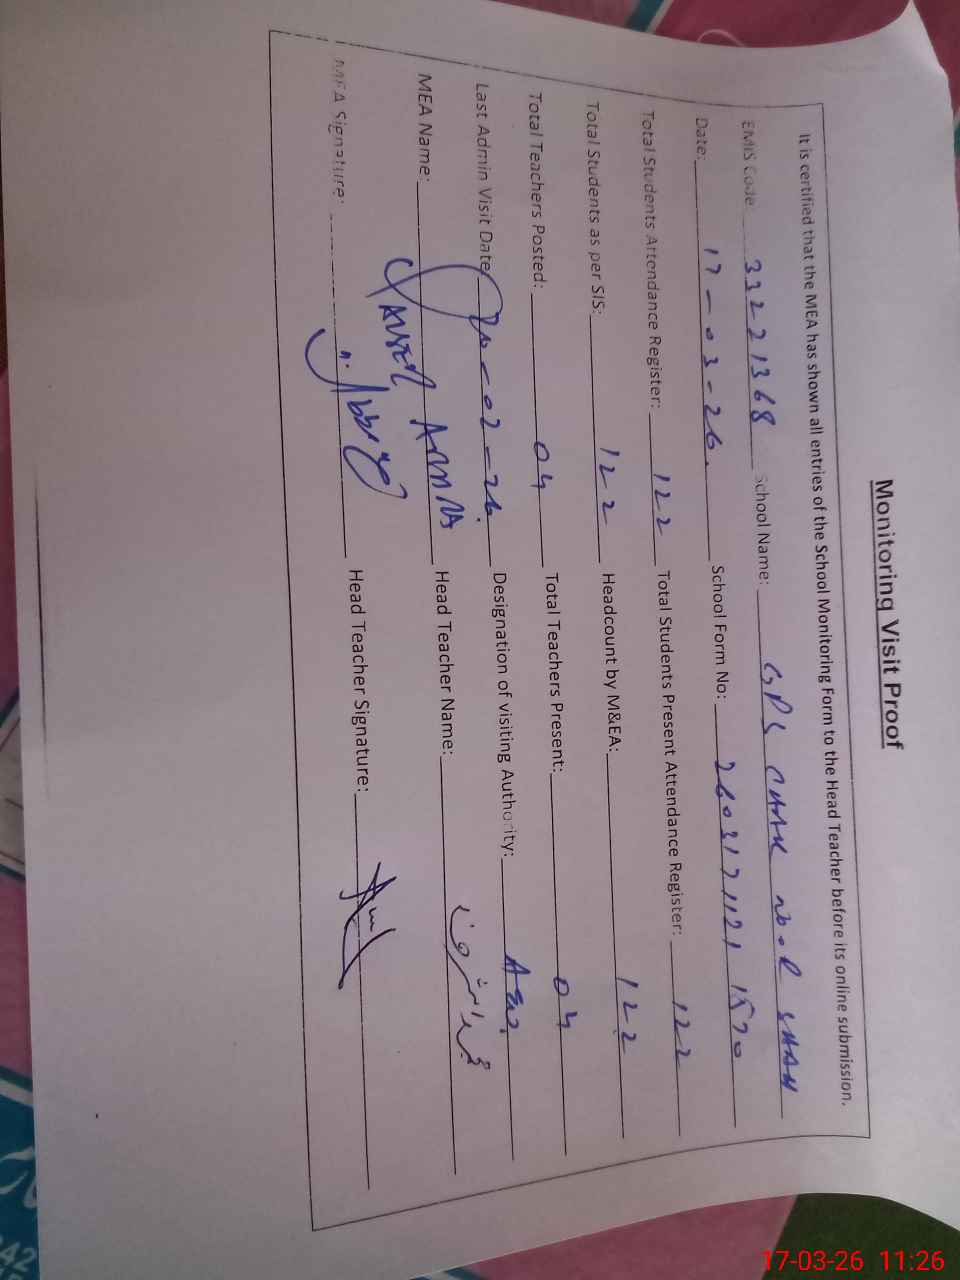 Monitoring Visit Proof
It is certified that the MEA has shown all entries of the School Monitoring Form to the Head Teacher before its online submission.
EMIS Code 33221368 School Name: GPS CHAK NOOR SHAH
Date: 17-03-26. School Form No: 26031711211570
Total Students Attendance Register: 122 Total Students Present Attendance Register: 122
Total Students as per SIS: 122 Headcount by M&EA: 122
Total Teachers Posted: 04 Total Teachers Present: 04
Last Admin Visit Date -02-26. Designation of visiting Authority: AEO.
MEA Name: Head Teacher Name:
MEA Signature: Head Teacher Signature:
17-03-26 11:26